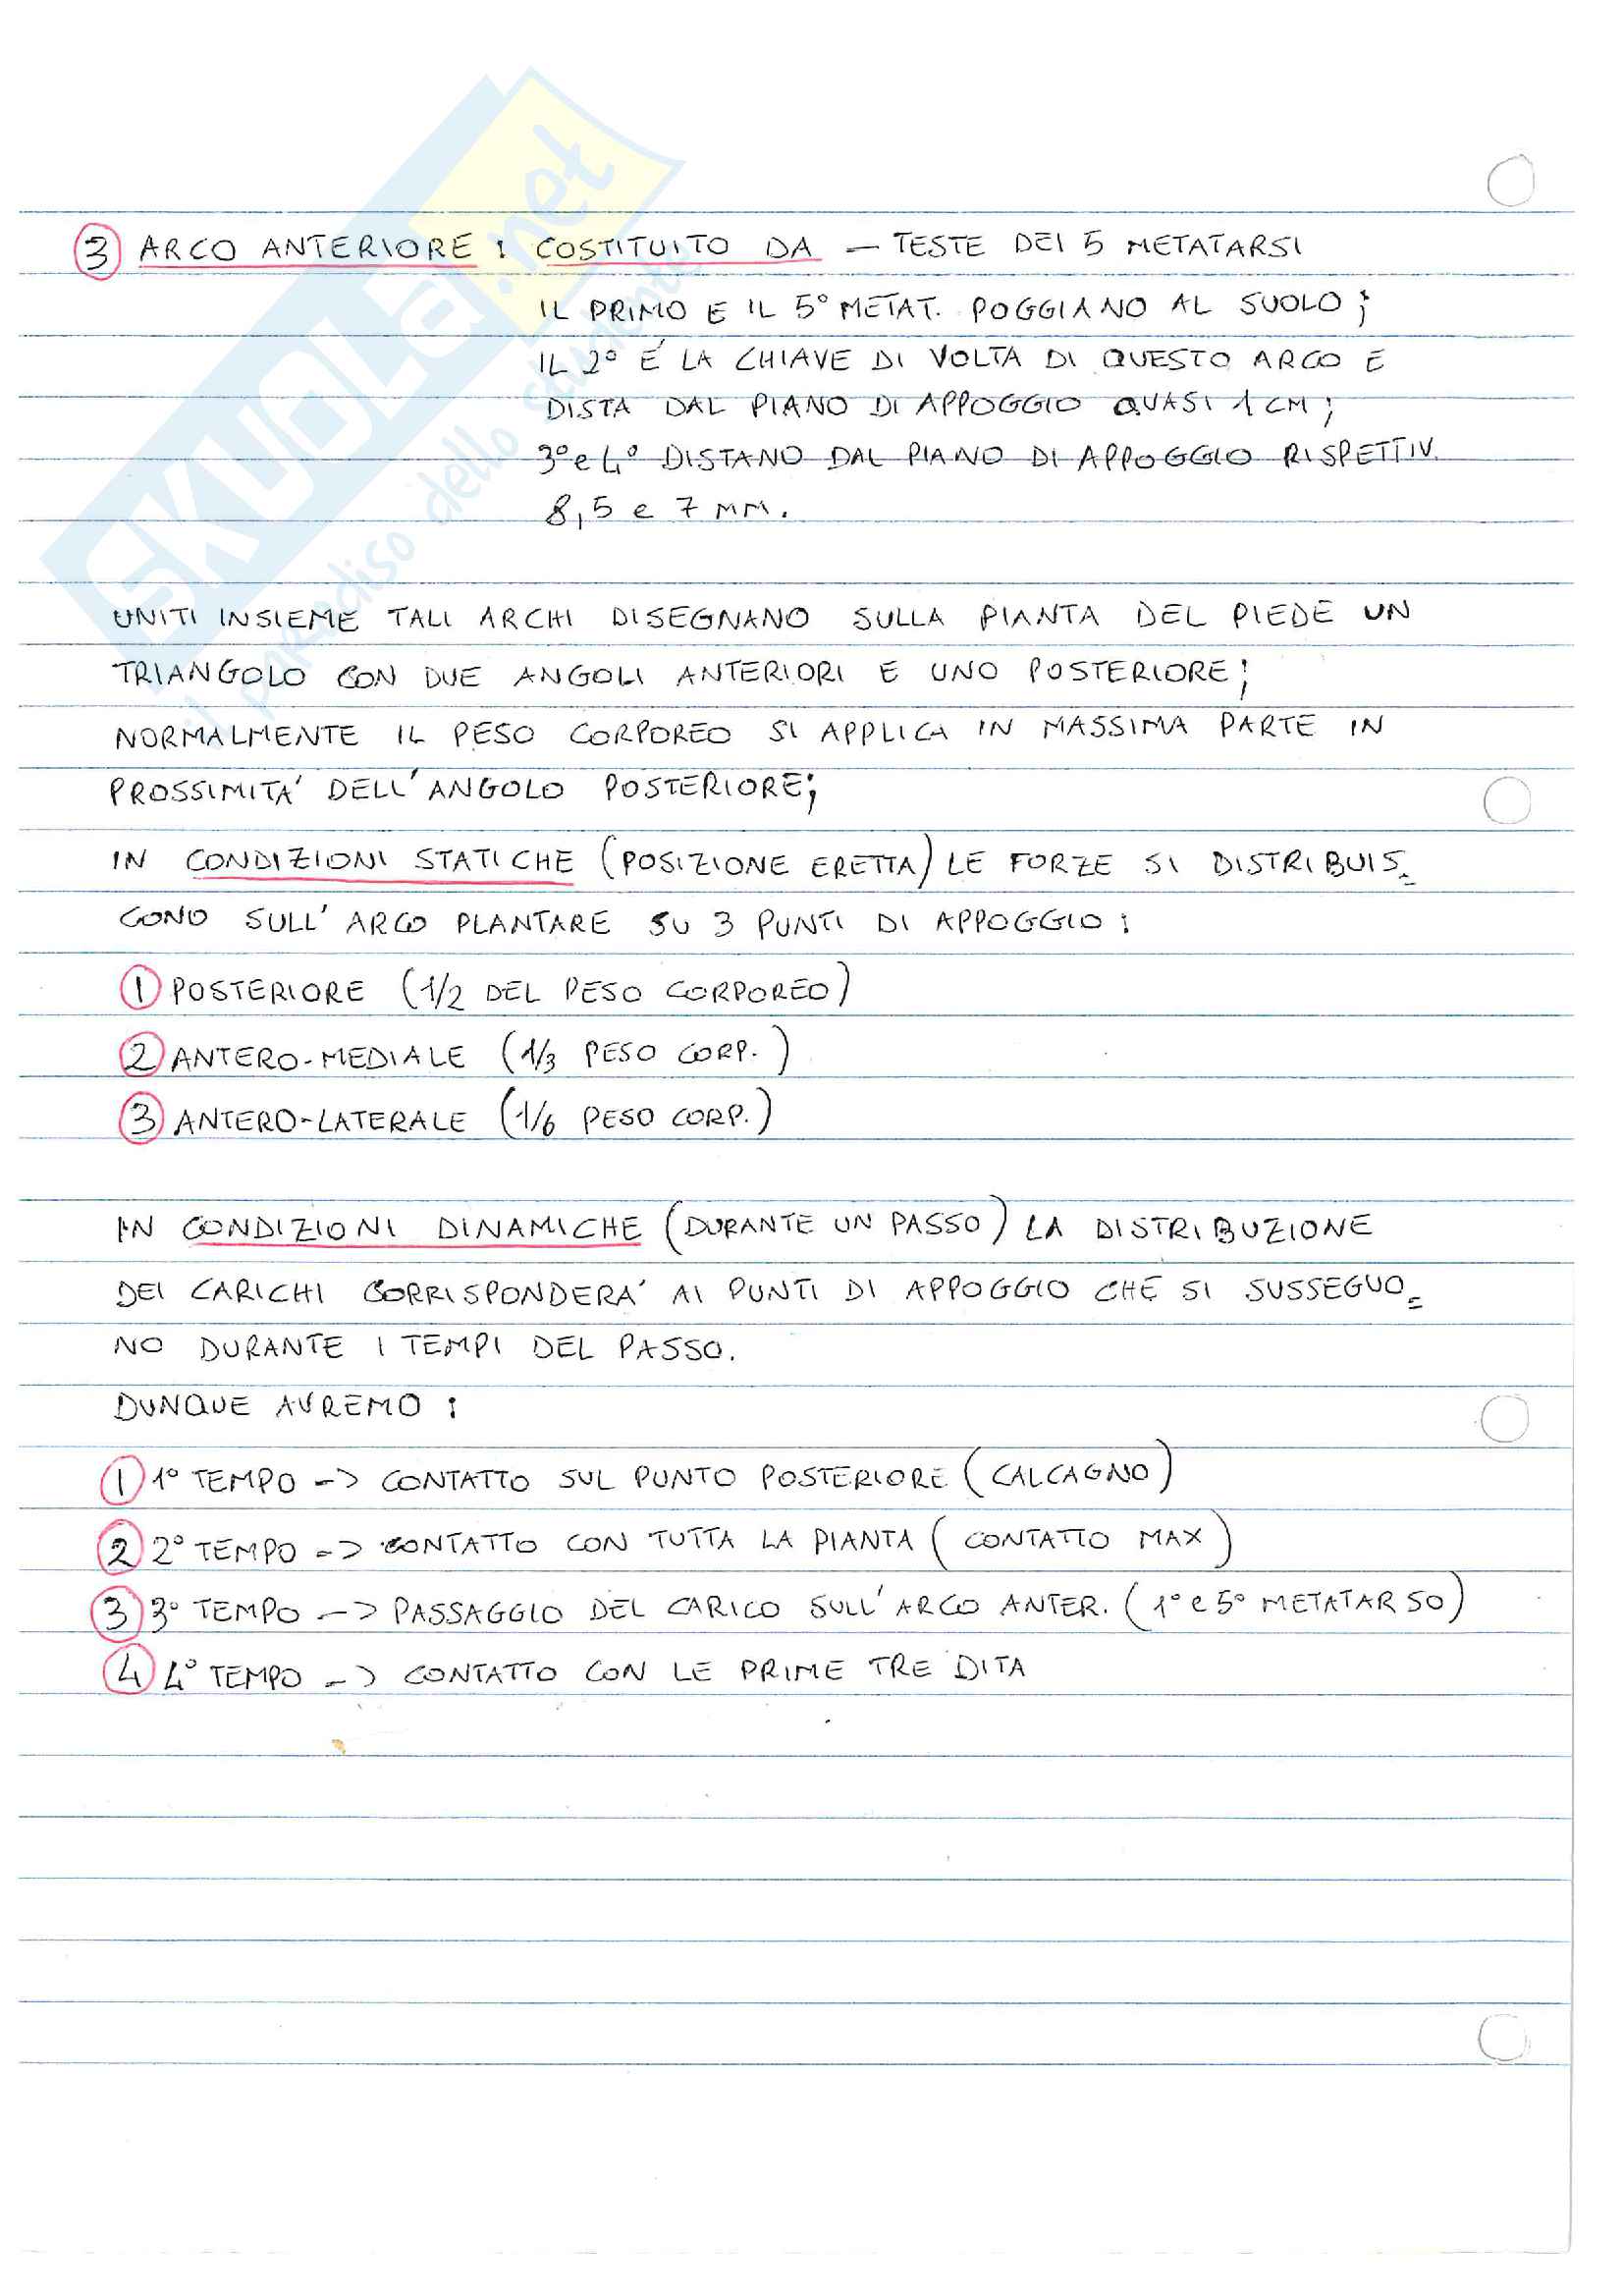 SKUOLA.net
il paradiso dello studente
3 ARCO ANTERIORE : COSTITUITO DA — TESTE DEI 5 METATARSI
IL PRIMO E IL 5° METAT. POGGIANO AL SUOLO ;
IL 2° E' LA CHIAVE DI VOLTA DI QUESTO ARCO E
DISTA DAL PIANO DI APPOGGIO QUASI 1 CM ;
3° e 4° DISTANO DAL PIANO DI APPOGGIO RISPETTIV.
8,5 e 7 MM.
UNITI INSIEME TALI ARCHI DISEGNANO SULLA PIANTA DEL PIEDE UN
TRIANGOLO CON DUE ANGOLI ANTERIORI E UNO POSTERIORE ;
NORMALMENTE IL PESO CORPOREO SI APPLICA IN MASSIMA PARTE IN
PROSSIMITA' DELL'ANGOLO POSTERIORE ;
IN CONDIZIONI STATICHE (POSIZIONE ERETTA) LE FORZE SI DISTRIBUIS=
CONO SULL'ARCO PLANTARE SU 3 PUNTI DI APPOGGIO :
1 POSTERIORE (1/2 DEL PESO CORPOREO)
2 ANTERO-MEDIALE (1/3 PESO CORP.)
3 ANTERO-LATERALE (1/6 PESO CORP.)
IN CONDIZIONI DINAMICHE (DURANTE UN PASSO) LA DISTRIBUZIONE
DEI CARICHI CORRISPONDERA' AI PUNTI DI APPOGGIO CHE SI SUSSEGUO=
NO DURANTE I TEMPI DEL PASSO.
DUNQUE AVREMO :
1 1° TEMPO -> CONTATTO SUL PUNTO POSTERIORE (CALCAGNO)
2 2° TEMPO -> CONTATTO CON TUTTA LA PIANTA (CONTATTO MAX)
3 3° TEMPO -> PASSAGGIO DEL CARICO SULL'ARCO ANTER. (1° e 5° METATARSO)
4 4° TEMPO -> CONTATTO CON LE PRIME TRE DITA